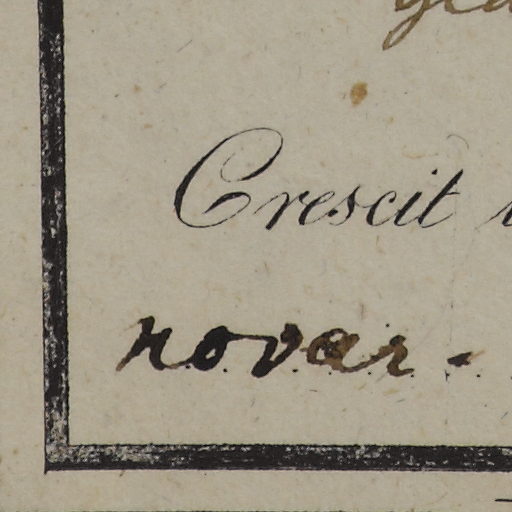 Crescit
novar.